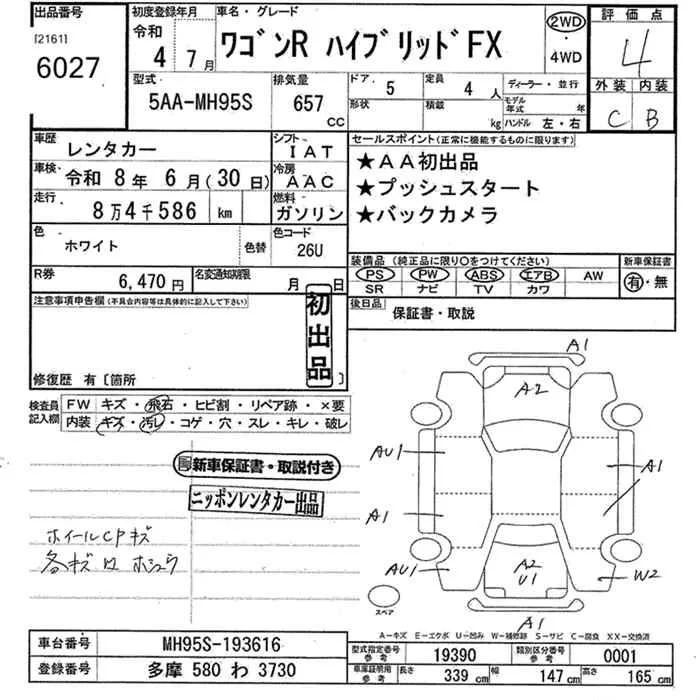 出品番号
[2161]
6027
初度登録年月
令和
4 7月
車名・グレード
ワゴンR ハイブリッドFX
2WD
・
4WD
評価点
4
外装 内装
C B
型式
5AA-MH95S
排気量
657
CC
ドア
5
定員
4 人
形状
積載
kg
ディーラー・並行
モデル年式 年
ハンドル 左・右
車歴
レンタカー
車検
令和 8年 6月(30日)
走行
8万4千586 km
シフト
IAT
冷房
AAC
燃料
ガソリン
色
ホワイト
色替
色コード
26U
R券
6,470円
名変通知期限
月 日
セールスポイント(正常に機能するものに限ります)
★AA初出品
★プッシュスタート
★バックカメラ
装備品(純正品に限り○をつけてください)
PS PW ABS エアB AW
SR ナビ TV カワ
新車保証書
有・無
後日品
保証書・取説
注意事項申告欄(不具合内容等は具体的に記入して下さい)
初出品
修復歴 有〔箇所 〕
検査員記入欄
FW キズ・飛石・ヒビ割・リペア跡・×要
内装 キズ・汚レ・コゲ・穴・スレ・キレ・破レ
新車保証書・取説付き
ニッポンレンタカー出品
ホイールCPキズ
各キズ ロ ホシュウ
A1
A2
AU1
A1
A1
AU1
A2
U1
W2
A1
スペア
A-キズ E-エクボ U-凹み W-補修跡 S-サビ C-腐食 XX-交換済
車台番号
MH95S-193616
登録番号
多摩 580 わ 3730
型式指定番号
参考
19390
類別区分番号
参考
0001
車庫証明用
参考
長さ
339 cm
幅
147 cm
高さ
165 cm